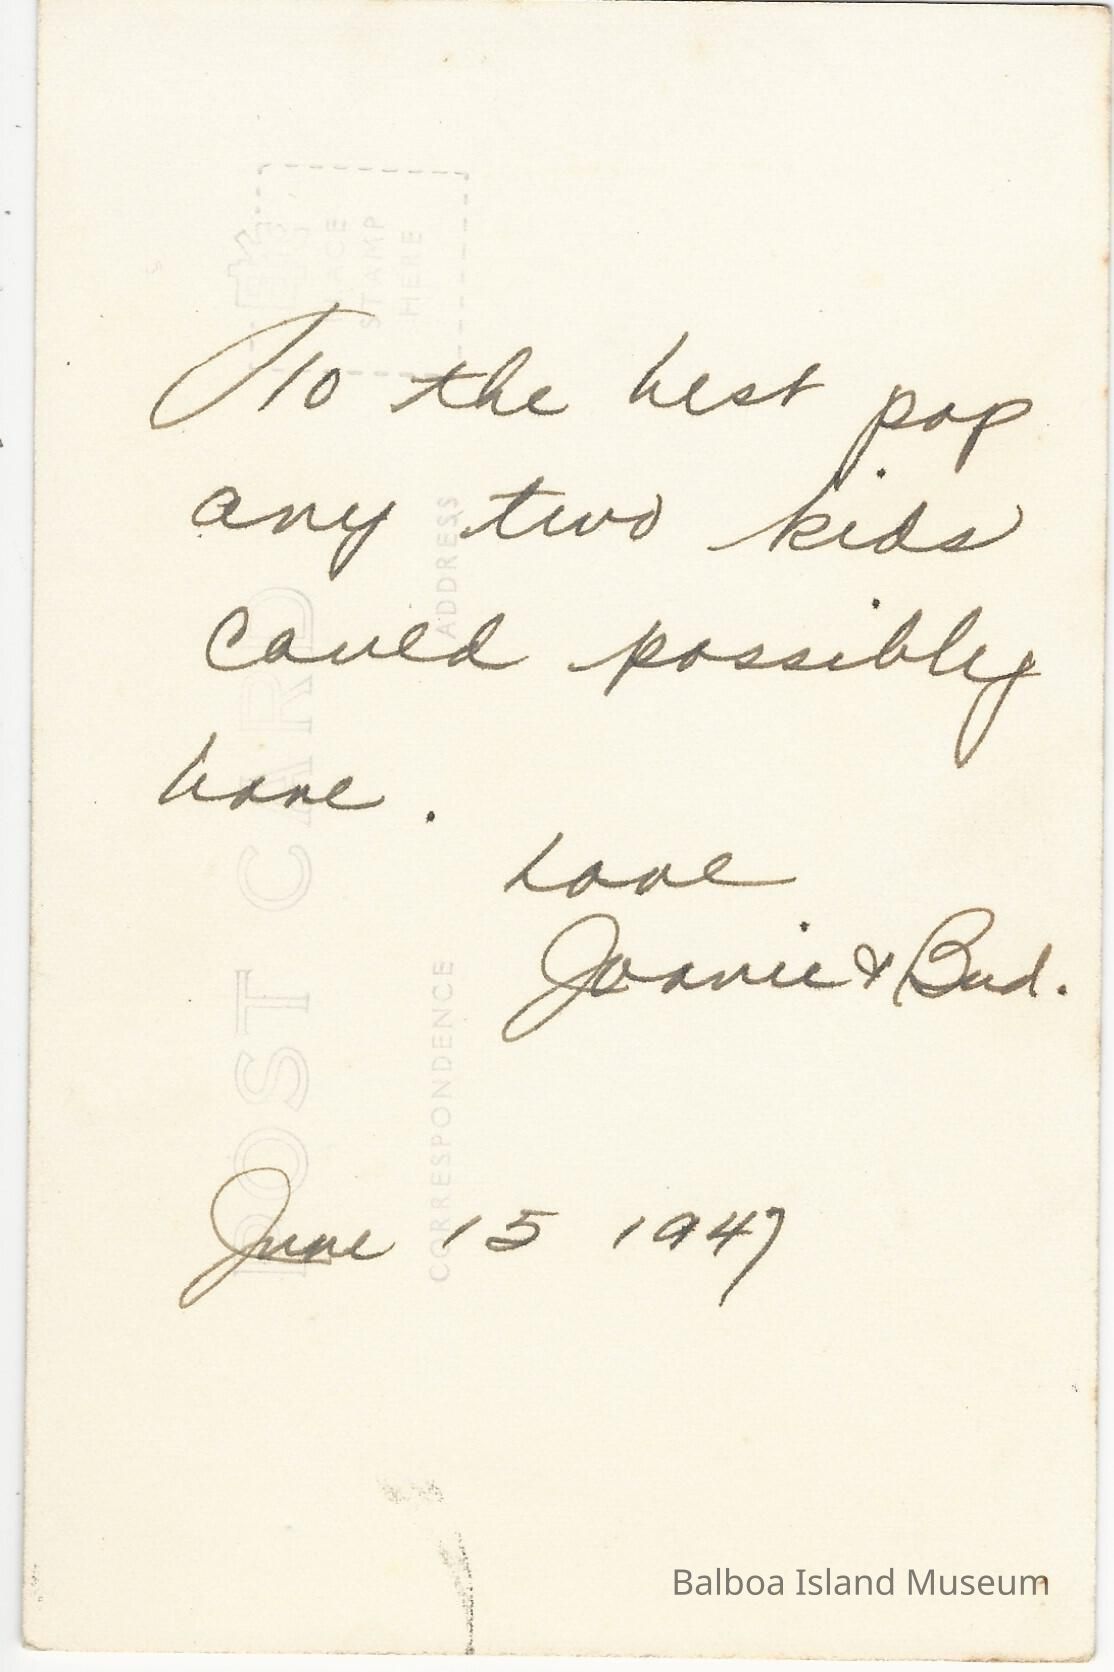 PLACE
STAMP
HERE
To the best pop
any two kids
could possibly
have.
Love
Joanie & Bud.
June 15 1947
POST CARD
ADDRESS
CORRESPONDENCE
Balboa Island Museum